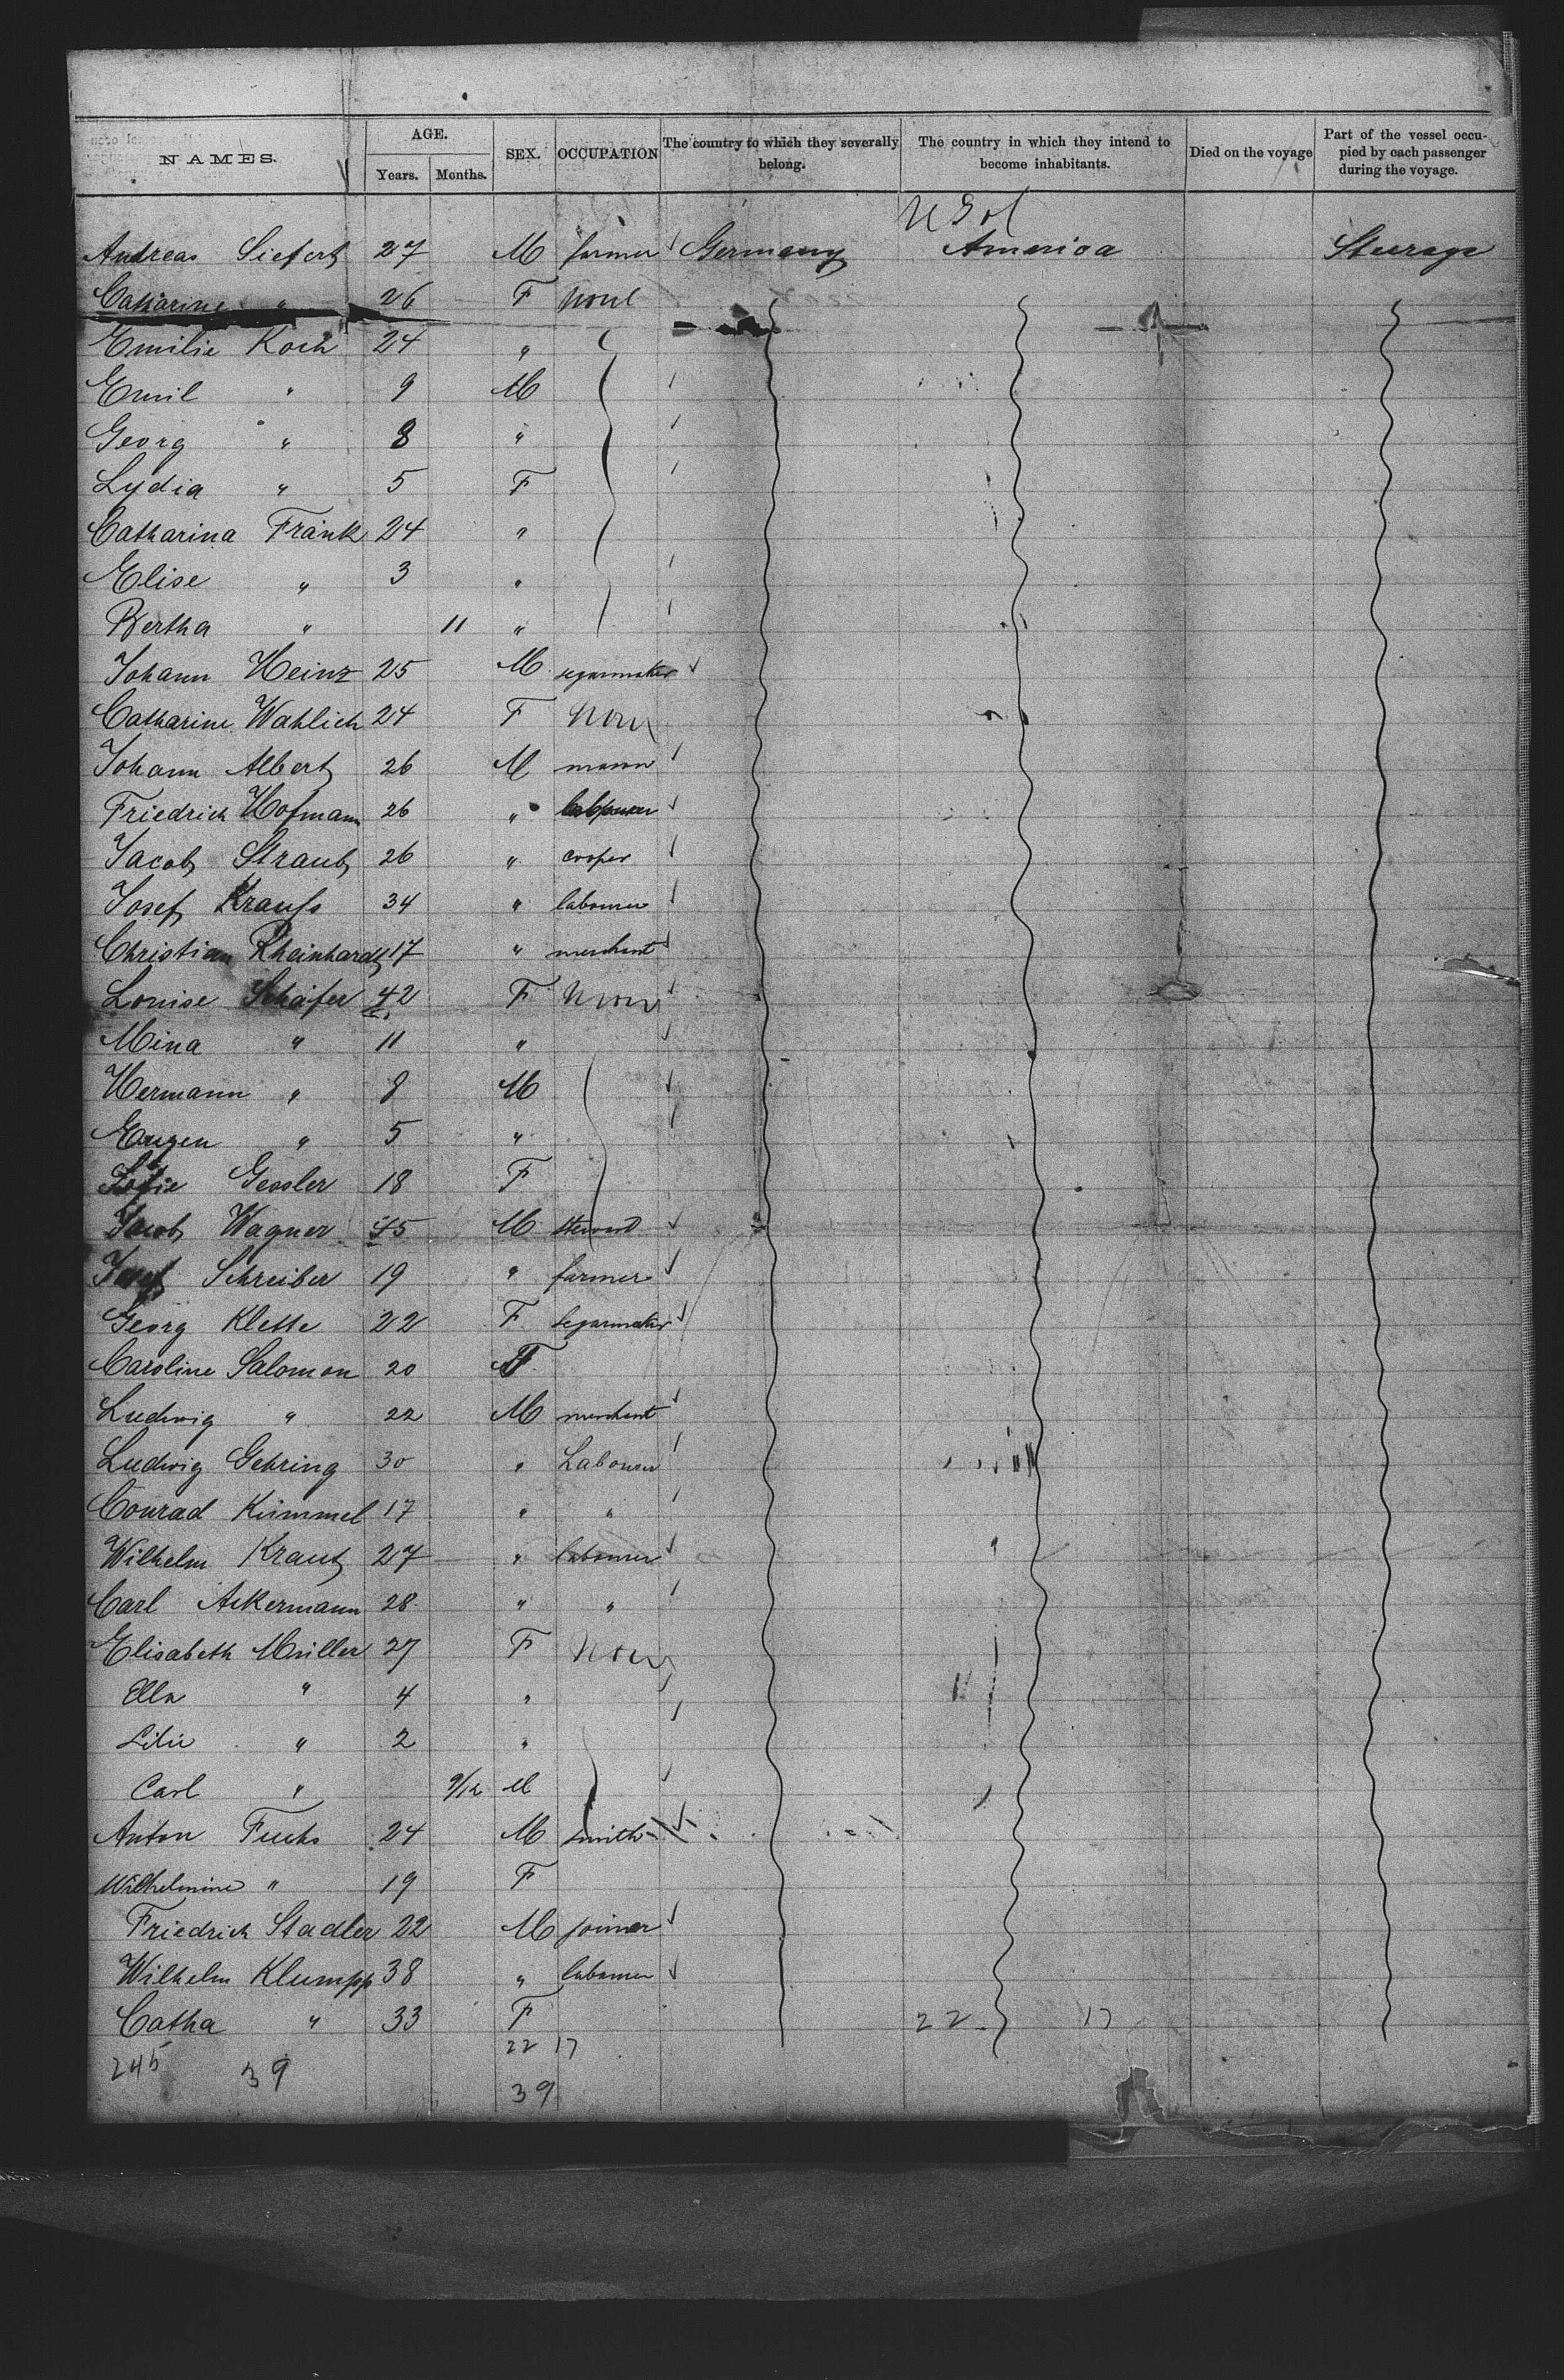 NAMES. AGE. Years. Months. SEX. OCCUPATION The country to which they severally belong. The country in which they intend to become inhabitants. Died on the voyage Part of the vessel occupied by each passenger during the voyage.
Andreas Siefert 27 M farmer Germany U S of America Steerage
Catharine " 26 F None
Emilie Koch 24 "
Emil " 9 M
Georg " 8 "
Lydia " 5 F
Catharina Frank 24 "
Elise " 3 "
Bertha " 11 "
Johann Heinz 25 M segarmaker
Catharine Wahlich 24 F None
Johann Albert 26 M mason
Friedrich Hofmann 26 " labourer
Jacob Straub 26 " cooper
Josef Krauss 34 " labourer
Christian Rheinhardt 17 " merchant
Louise Schäfer 42 F None
Mina " 11 "
Hermann " 8 M
Eugen " 5 "
Sofie Gessler 18 F
Jacob Wagner 45 M steward
Josef Schreiber 19 " farmer
Georg Klette 22 F segarmaker
Caroline Salomon 20 F
Ludwig " 22 M merchant
Ludwig Gehring 30 " Labourer
Conrad Kimmel 17 " "
Wilhelm Kraut 27 " labourer
Carl Ackermann 28 " "
Elisabeth Müller 27 F None
Ella " 4 "
Lilie " 2 "
Carl " 9/12 M
Anton Fuchs 24 M smith
Wilhelmine " 19 F
Friedrich Stadler 22 M joiner
Wilhelm Klumpp 38 " labourer
Catha " 33 F 22 17
22 17
245 39
39